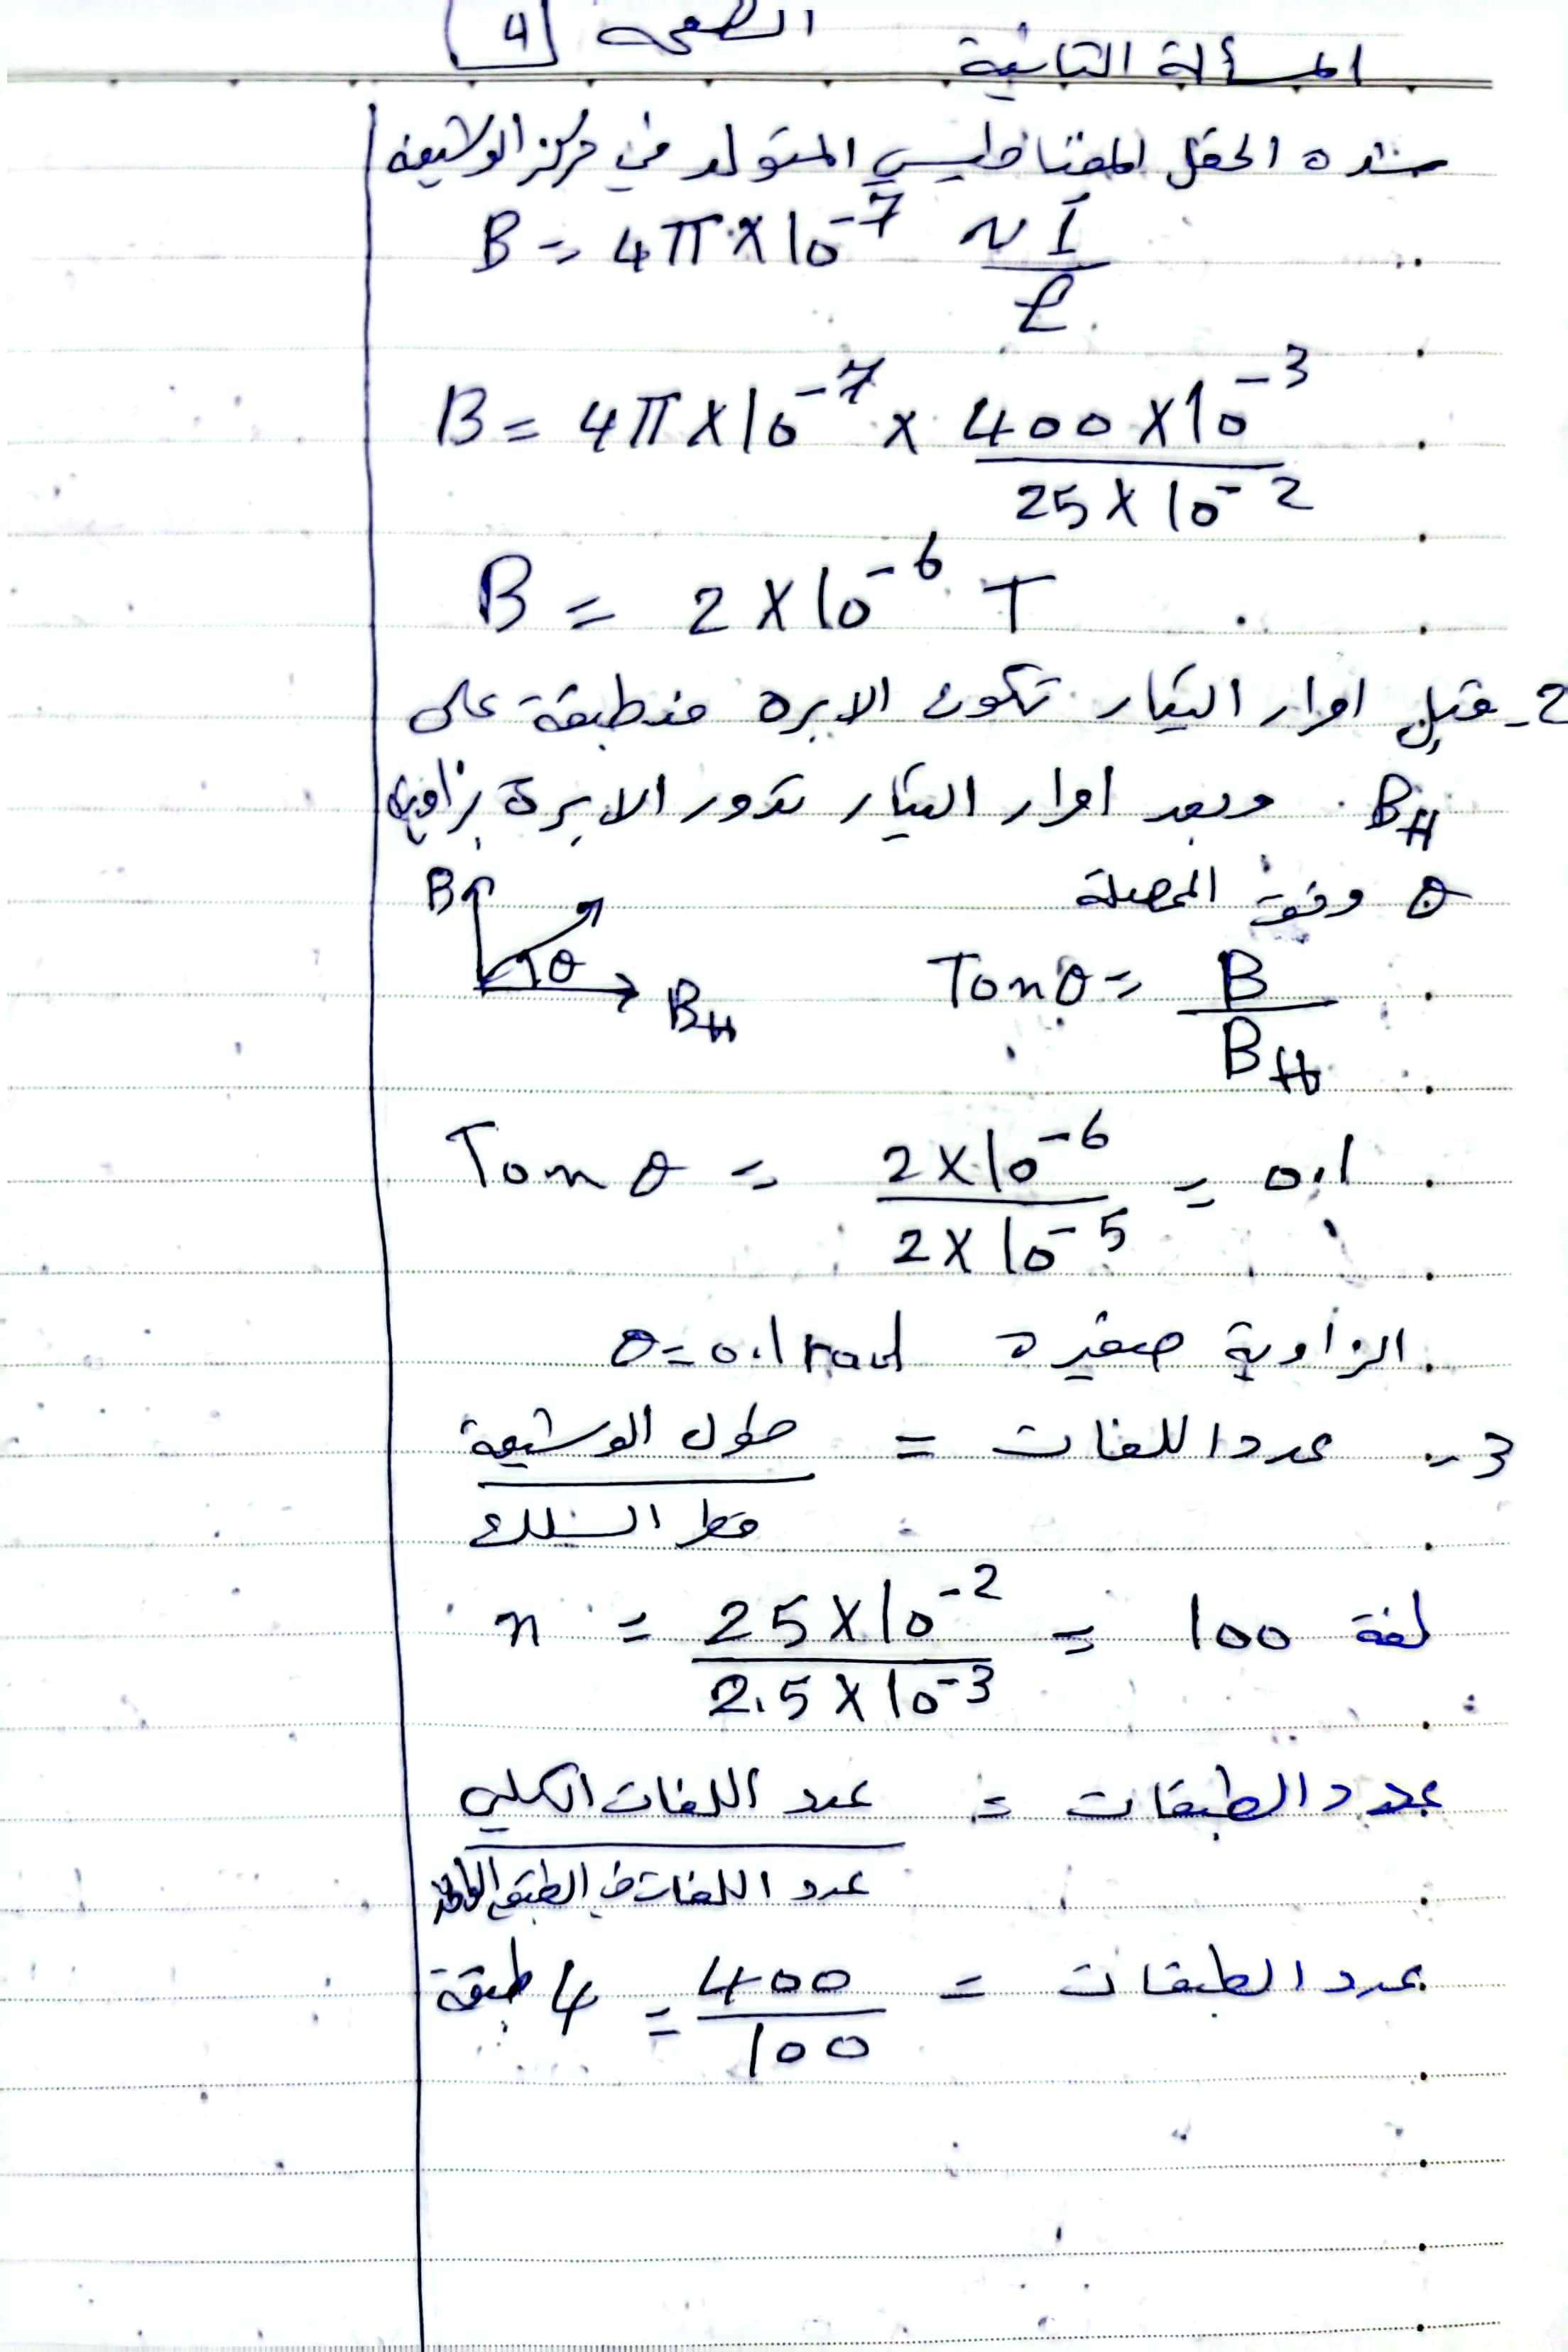 الصفحة 9
المسألة الثانية
شدة الحقل المغناطيسي المتولد في مركز الوشيعة
B = 4π × 10⁻⁷ NI / ℓ
B = 4π × 10⁻⁷ × 400 × 10⁻³ / 25 × 10⁻²
B = 2 × 10⁻⁶ T
2- قبل امرار التيار تكون الابرة منطبقة على
B_H وبعد امرار التيار تدور الابرة بزاوية
θ وفق المحصلة
B θ B_H
Tanθ = B / B_H
Tanθ = 2 × 10⁻⁶ / 2 × 10⁻⁵ = 0.1
الزاوية صغيرة θ = 0.1 rad
3- عدد اللفات = طول الوشيعة / قطر السلك
n = 25 × 10⁻² / 2.5 × 10⁻³ = 100 لفة
عدد الطبقات = عدد اللفات الكلي / عدد اللفات في الطبقة الواحدة
عدد الطبقات = 400 / 100 = 4 طبقة